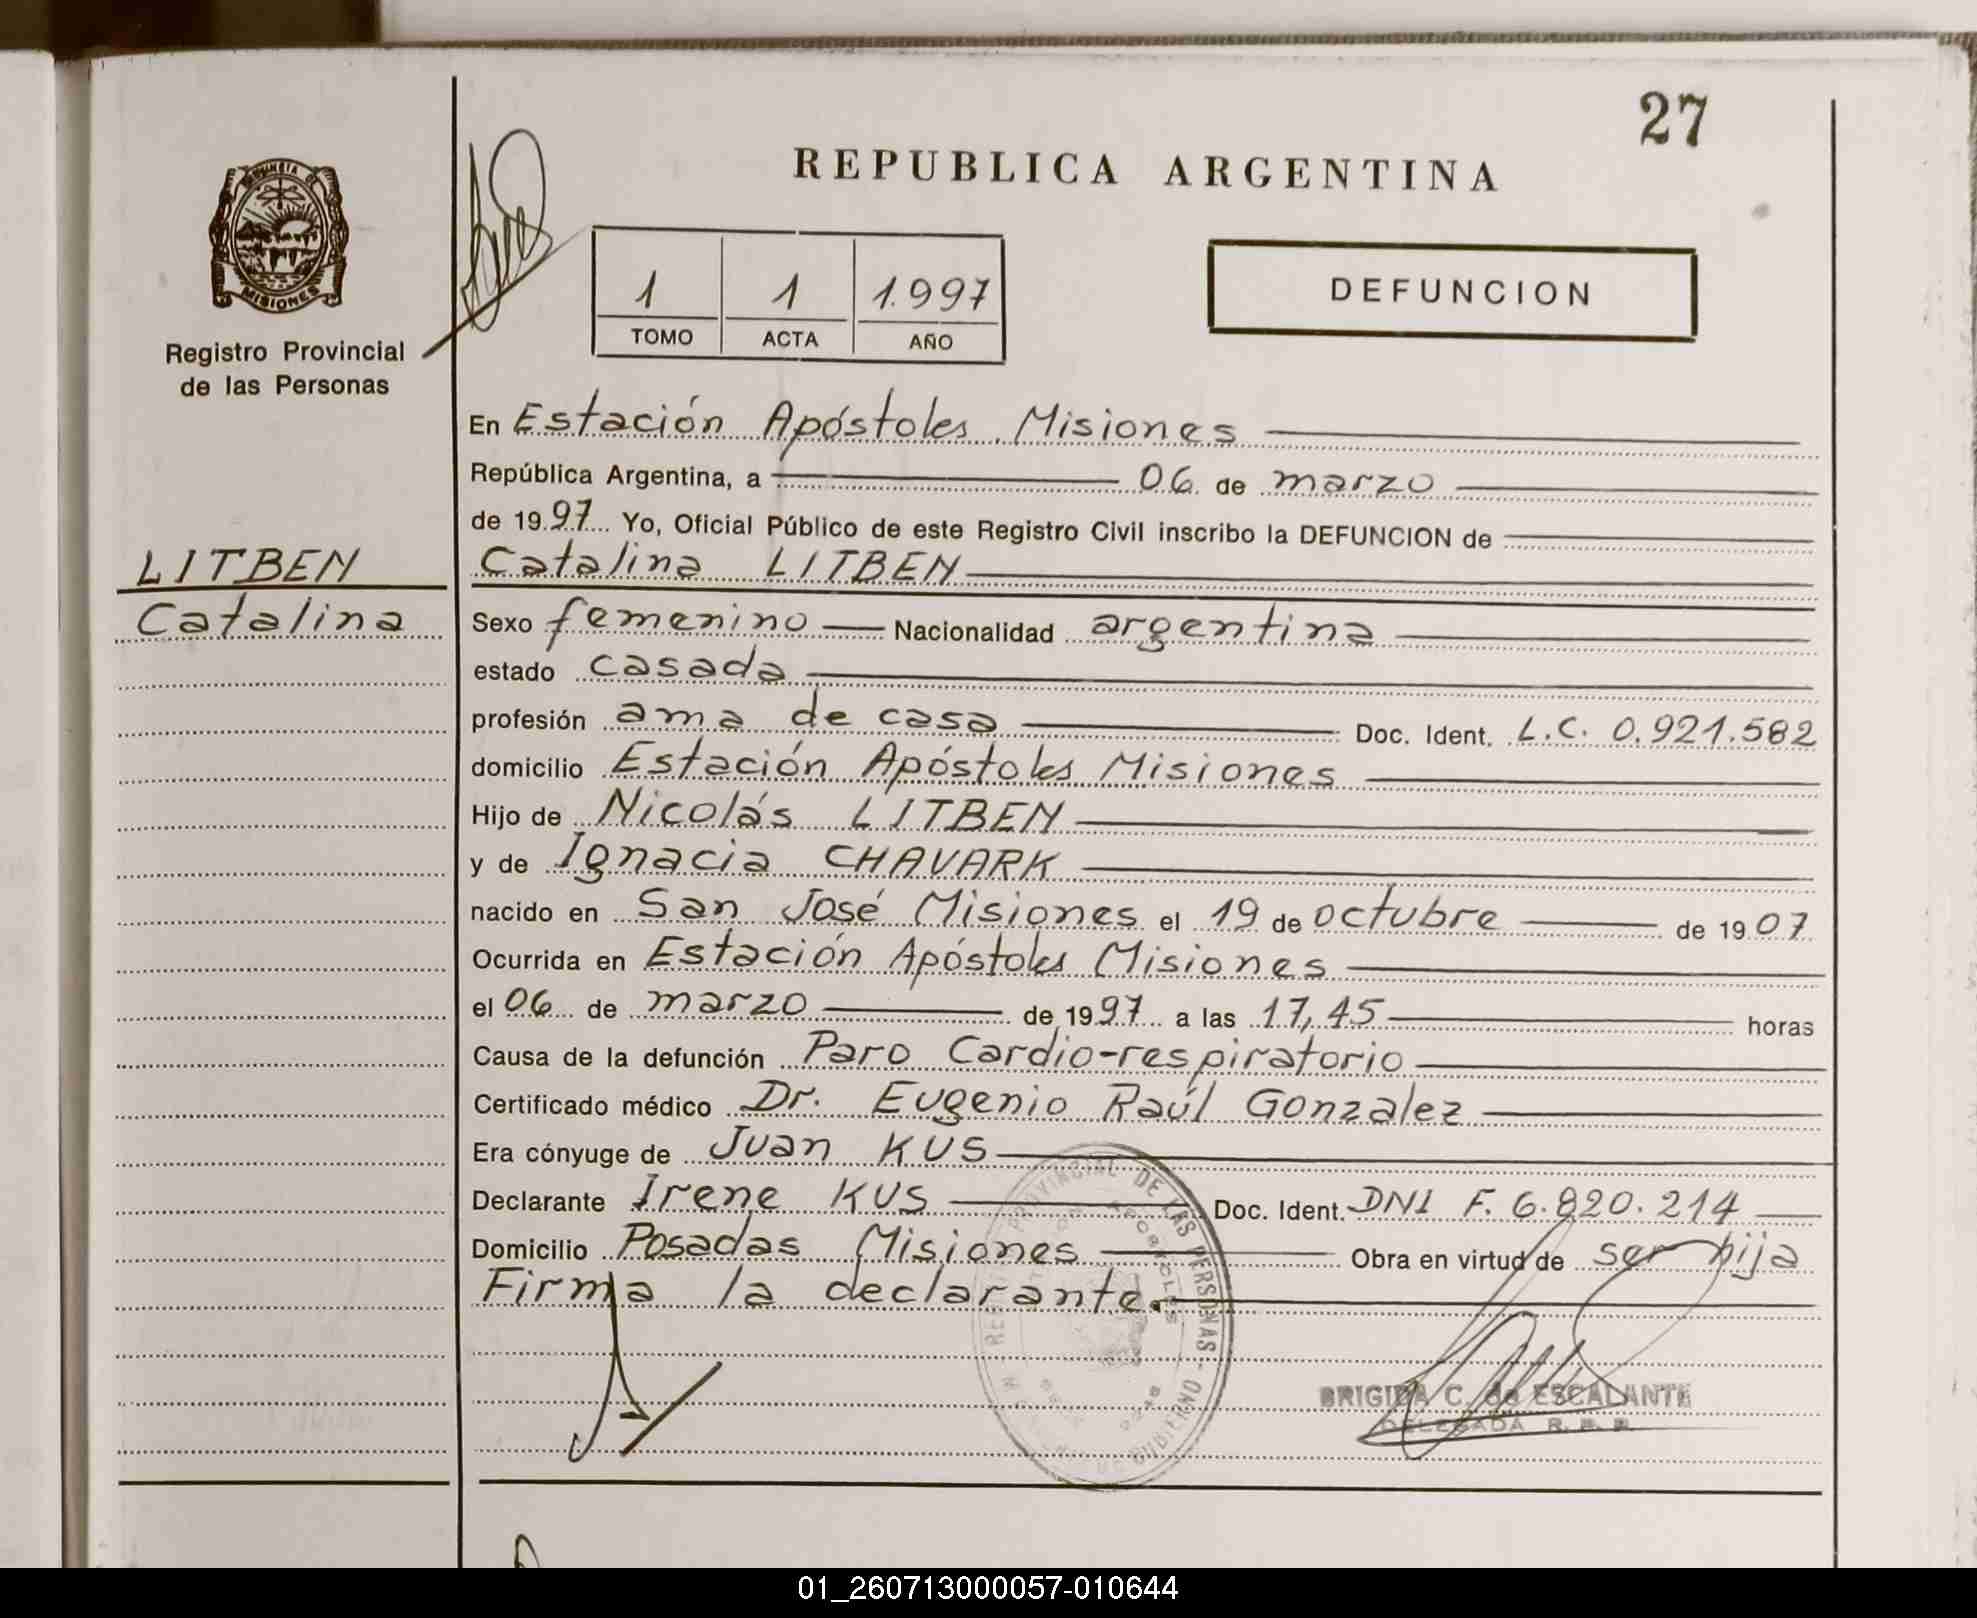 27
REPUBLICA ARGENTINA
PROVINCIA DE
MISIONES
Registro Provincial
de las Personas
1 1 1.997
TOMO ACTA AÑO
DEFUNCION
LITBEN
Catalina
En Estación Apóstoles Misiones
República Argentina, a 06 de marzo
de 1997 Yo, Oficial Público de este Registro Civil inscribo la DEFUNCION de
Catalina LITBEN
Sexo femenino Nacionalidad argentina
estado casada
profesión ama de casa Doc. Ident. L.C. 0.921.582
domicilio Estación Apóstoles Misiones
Hijo de Nicolás LITBEN
y de Ignacia CHAVARK
nacido en San José Misiones el 19 de octubre de 1907
Ocurrida en Estación Apóstoles Misiones
el 06 de marzo de 1997 a las 17,45 horas
Causa de la defunción Paro Cardio-respiratorio
Certificado médico Dr. Eugenio Raúl Gonzalez
Era cónyuge de Juan KUS
Declarante Irene KUS Doc. Ident. DNI F. 6.820.214
Domicilio Posadas Misiones Obra en virtud de ser hija
Firma la declarante.
PROVINCIAL DE LAS PERSONAS
BRIGIDA C. de ESCALANTE
DELEGADA R. P. P.
01_260713000057-010644